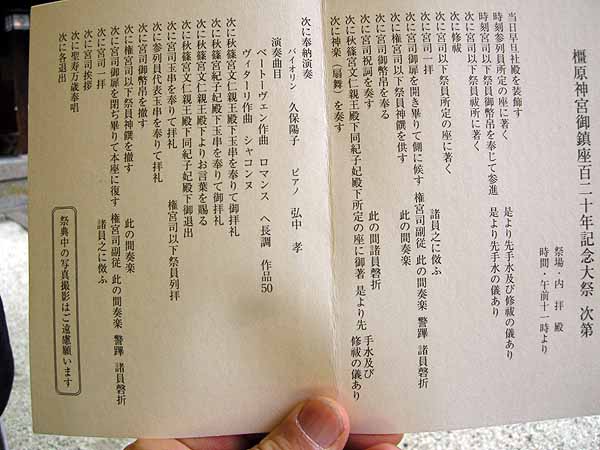 橿原神宮御鎮座百二十年記念大祭 次第
祭場・内拝殿
時間・午前十一時より
当日早旦社殿を装飾す
時刻参列員所定の座に著く 是より先手水及び修祓の儀あり
次に宮司以下祭員御幣帛を奉じて参進 是より先手水の儀あり
次に宮司以下祭員祓所に著く
次に修祓
次に宮司以下祭員所定の座に著く
次に宮司一拝 諸員之に倣ふ
次に宮司御扉を開き畢りて側に候す 権宮司副従 此の間奏楽 警蹕 諸員磬折
次に権宮司以下祭員神饌を供す 此の間奏楽
次に宮司御幣帛を奉る
次に宮司祝詞を奏す 此の間諸員磬折
次に秋篠宮文仁親王殿下同紀子妃殿下所定の座に御著 是より先手水及び修祓の儀あり
次に神楽(扇舞)を奏す
次に奉納演奏
バイオリン 久保陽子 ピアノ 弘中 孝
演奏曲目
ベートーヴェン作曲 ロマンス ヘ長調 作品50
ヴィターリ作曲 シャコンヌ
次に秋篠宮文仁親王殿下玉串を奉りて御拝礼
次に秋篠宮紀子妃殿下玉串を奉りて御拝礼
次に秋篠宮文仁親王殿下よりお言葉を賜る
次に秋篠宮文仁親王殿下同紀子妃殿下御退出
次に宮司玉串を奉りて拝礼 権宮司以下祭員列拝
次に参列員代表玉串を奉りて拝礼
次に宮司御幣帛を撤す
次に権宮司以下祭員神饌を撤す 此の間奏楽
次に宮司御扉を閉ぢ畢りて本座に復す 権宮司副従 此の間奏楽 警蹕 諸員磬折
次に宮司一拝 諸員之に倣ふ
次に宮司挨拶
次に聖寿万歳奉唱
次に各退出
祭典中の写真撮影はご遠慮願います